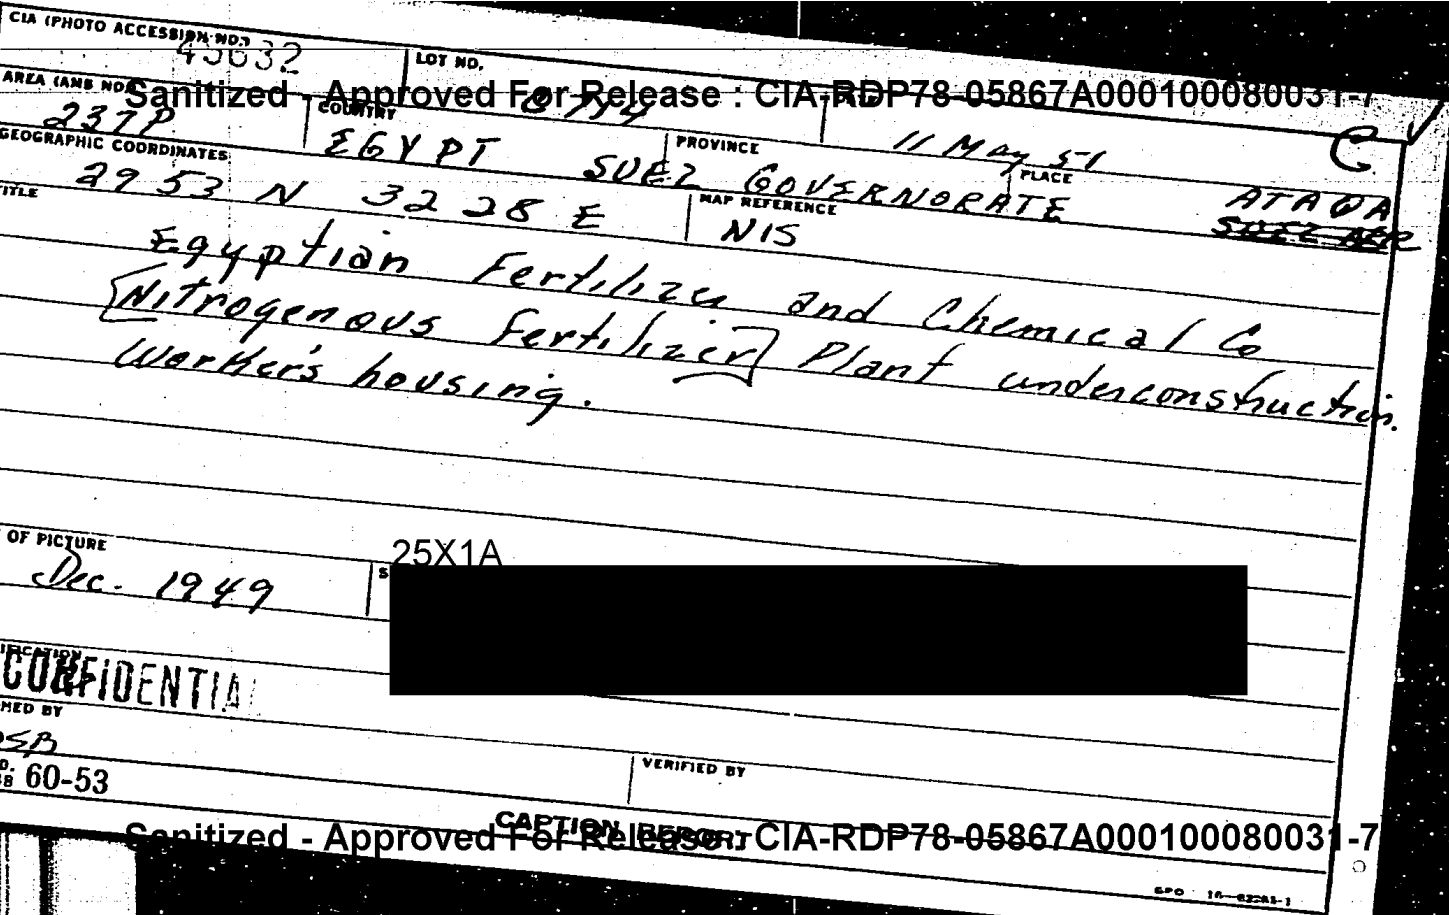 CIA (PHOTO ACCESSION NO.)
LOT NO.
AREA (AMS NO.)
Sanitized - Approved For Release : CIA-RDP78-05867A000100080031-7
237P
COUNTRY
11 May 51
C
GEOGRAPHIC COORDINATES
EGYPT
PROVINCE
SUEZ GOVERNORATE
PLACE
ATAQA
TITLE
29 53 N 32 28 E
MAP REFERENCE
NIS
Egyptian Fertilizer and Chemical Co
[Nitrogenous Fertilizer] Plant under construction.
Worker's housing.
OF PICTURE
25X1A
Dec. 1949
S
CONFIDENTIAL
MED BY
60-53
VERIFIED BY
CAPTION REPORT
Sanitized - Approved For Release : CIA-RDP78-05867A000100080031-7
GPO